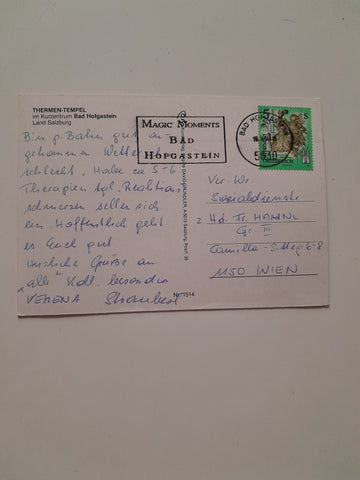 THERMEN-TEMPEL
im Kurzentrum Bad Hofgastein
Land Salzburg
Bin p. Bahn gut an-
gekommen Wetter
schlecht. Habe ca 5-6
Therapien tgl. Reaktions
schmerzen stellen sich
ein. Hoffentlich geht
es Euch gut
Herzliche Grüße an
"alle" Koll. besonders
VERENA
Nr. 1514
MAGIC MOMENTS
BAD
HOFGASTEIN
BAD HOFGASTEIN
5630
5 S
Ver. Wr.
Sozialdienste
Gr. III
1150 WIEN